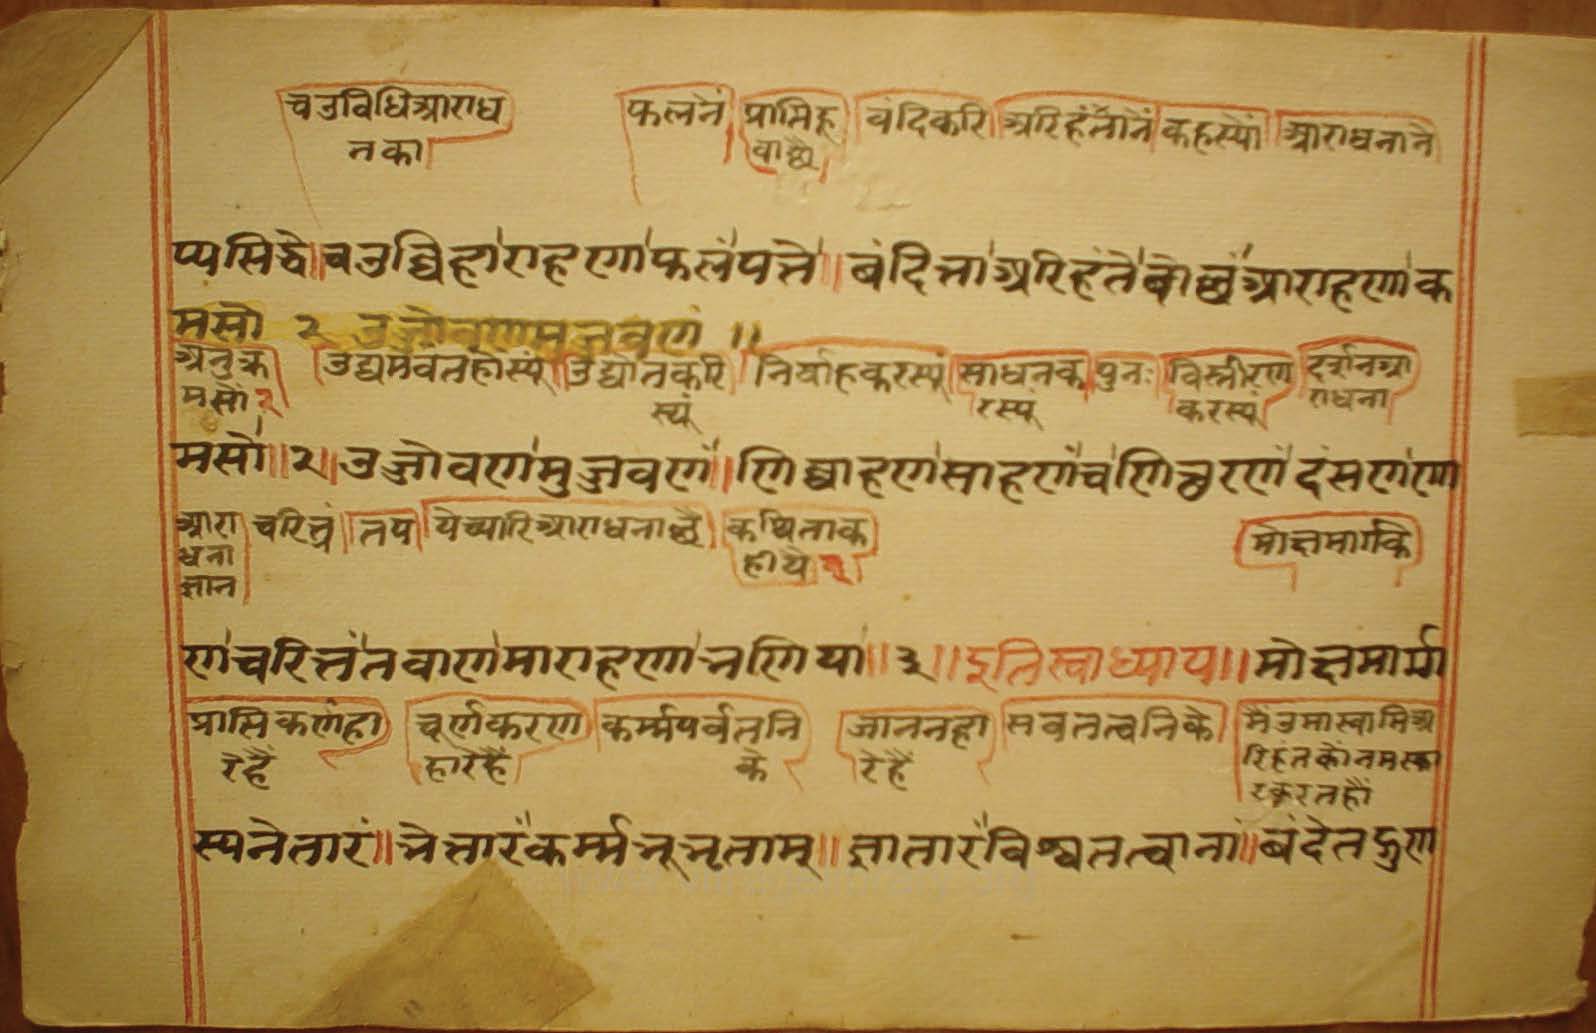 चउविधिआराध फलनें प्राप्तिहू वंदिकरि अरिहंतांनें कहस्यों आराधनाने
नका वाछै
प्यसिद्धे॥चउव्विहाराहणाफलंपत्ते॥बंदित्ताअरिहंतेबोच्छंआराहणाक
मसो २ उज्जोवणमुज्जवणं ॥
अनुक्र उद्यमवतहोस्यूं उद्योतकरि निर्वाहकरस्यूं साधनक पुनः विस्तीरण दर्शनआ
मसों २ स्यूं रस्यूं करस्यूं राधना
मसो॥२॥उज्जोवणमुज्जवणं॥णिव्वाहणंसाहणंचणिच्छरणंदंसणणा
आरा चरित्रं तप येच्यारिआराधनाछै कथिताक मोक्षमार्गकि
धना हीये २
ज्ञान
णंचरित्तंतवाणमाराहणाभणिया॥३॥इतिस्वाध्याय॥मोक्षमार्ग
प्राप्तिकर्णहा चूर्णकरण कर्म्मपर्वतनि जाननहा सवतत्वनिके मैउमास्वामिअ
रेहैं हारेहैं के रेहैं रिहंतकोनमस्का
रकरतहौं
स्यनेतारं॥भेत्तारंकर्म्मभूभृताम्॥ज्ञातारंविश्वतत्वानां॥बंदेतद्गुण